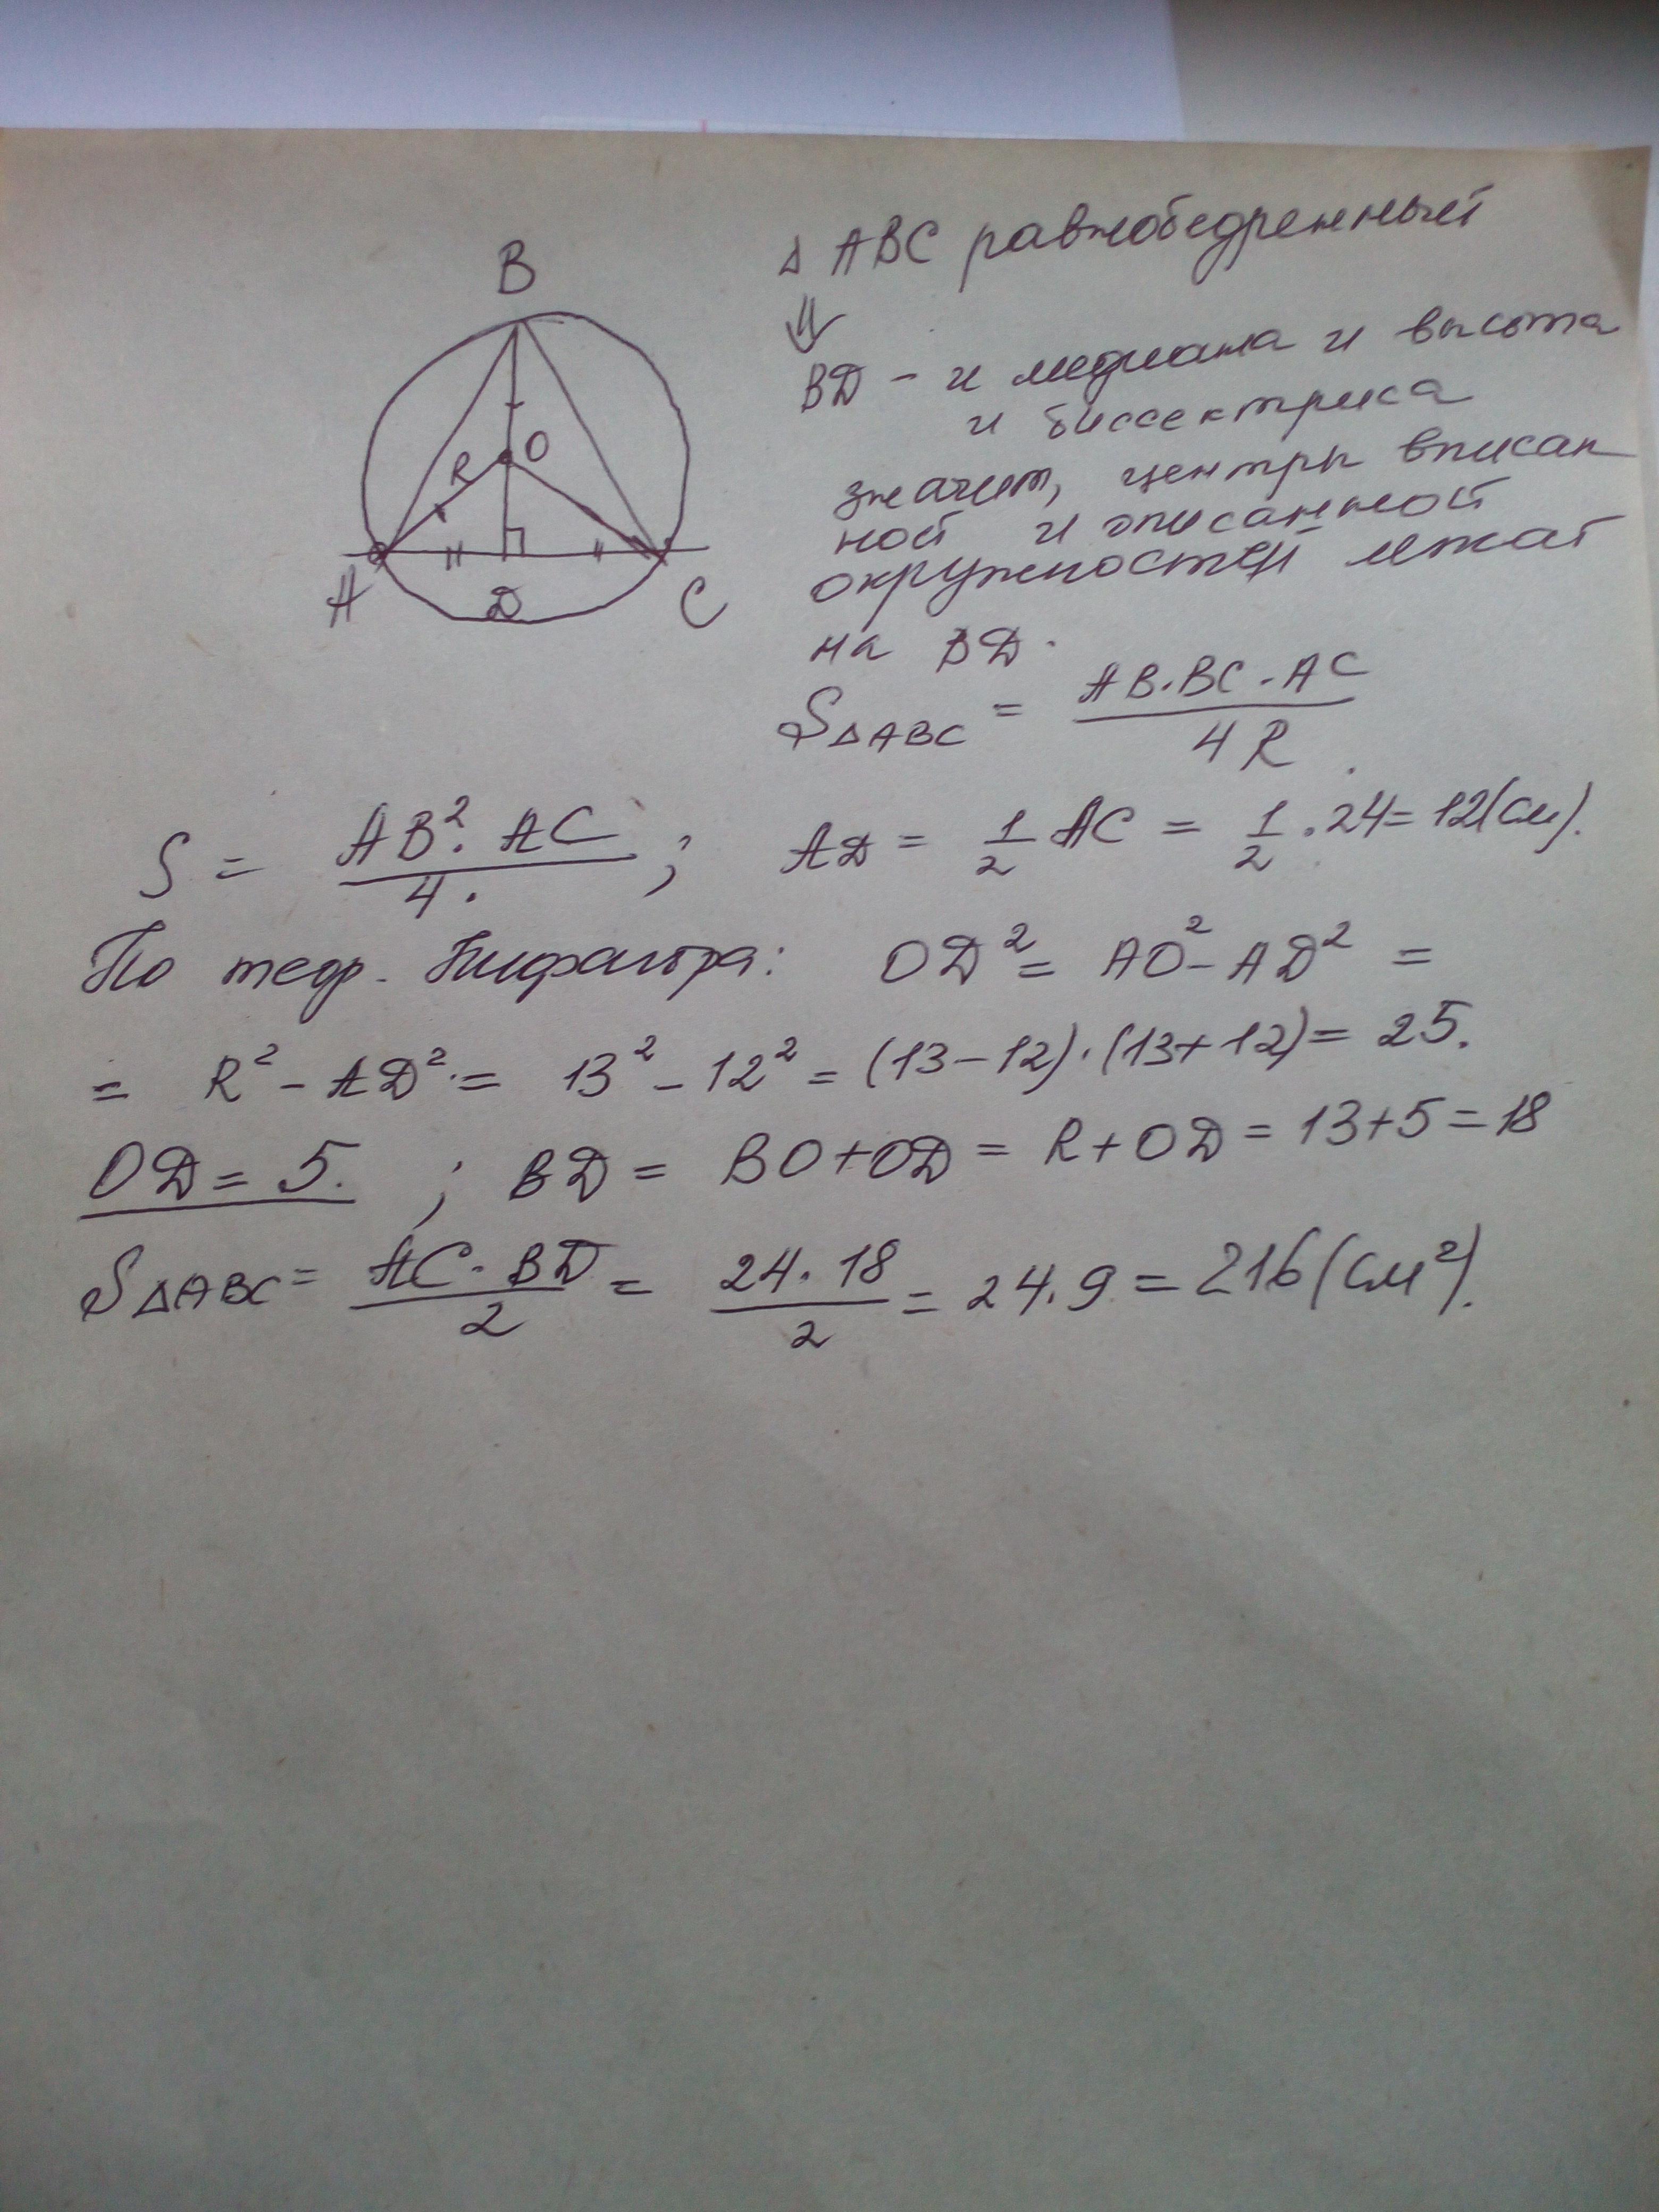 △ ABC равнобедренный
⇓
B
BD - и медиана и высота
и биссектриса
R O
значит, центры вписан
ной и описанной
окружностей лежат
A D C
на BD.
S△ABC = AB·BC·AC / 4R.
S = AB²·AC / 4. ; AD = 1/2 AC = 1/2 · 24 = 12(см).
По теор. Пифагора: OD² = AO² - AD² =
= R² - AD² = 13² - 12² = (13-12)·(13+12) = 25.
OD = 5. ; BD = BO+OD = R+OD = 13+5 = 18
S△ABC = AC·BD / 2 = 24·18 / 2 = 24·9 = 216(см²).